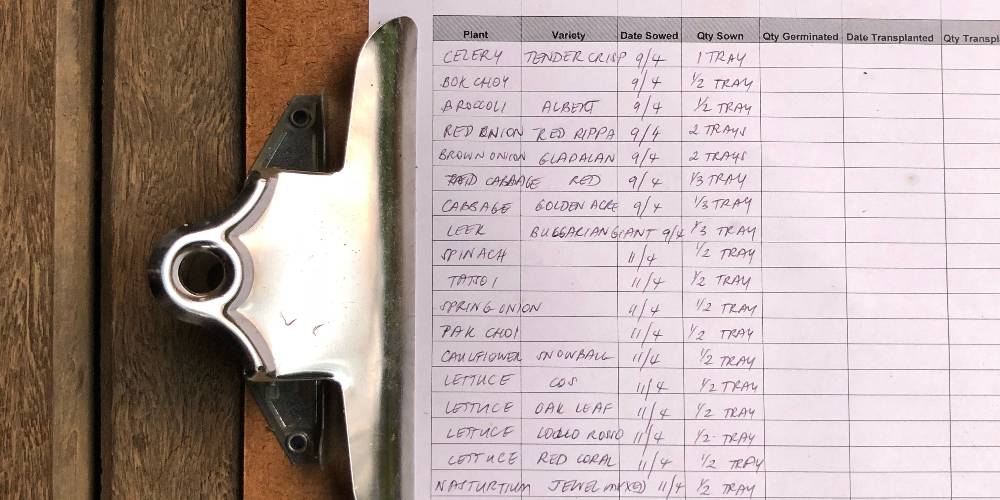 Plant Variety Date Sowed Qty Sown Qty Germinated Date Transplanted Qty Transpl
CELERY TENDER CRISP 9/4 1 TRAY
BOK CHOY 9/4 1/2 TRAY
BROCCOLI ALBERT 9/4 1/2 TRAY
RED ONION RED RIPPA 9/4 2 TRAYS
BROWN ONION GLADALAN 9/4 2 TRAYS
RED CABBAGE RED 9/4 1/3 TRAY
CABBAGE GOLDEN ACRE 9/4 1/3 TRAY
LEEK BULGARIAN GIANT 9/4 1/3 TRAY
SPINACH 11/4 1/2 TRAY
TATSOI 11/4 1/2 TRAY
SPRING ONION 11/4 1/2 TRAY
PAK CHOI 11/4 1/2 TRAY
CAULIFLOWER SNOWBALL 11/4 1/2 TRAY
LETTUCE COS 11/4 1/2 TRAY
LETTUCE OAK LEAF 11/4 1/2 TRAY
LETTUCE LOLLO ROSSO 11/4 1/2 TRAY
LETTUCE RED CORAL 11/4 1/2 TRAY
NASTURTIUM JEWEL MIXED 11/4 1/2 TRAY